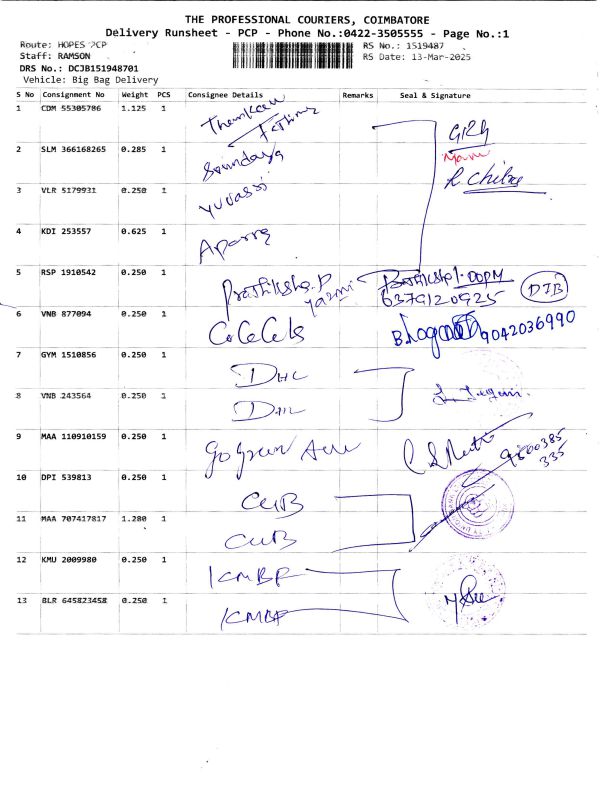 THE PROFESSIONAL COURIERS, COIMBATORE
Delivery Runsheet - PCP - Phone No.:0422-3505555 - Page No.:1
Route: HOPES PCP
RS No.: 1519487
Staff: RAMSON
RS Date: 13-Mar-2025
DRS No.: DCJB151948701
Vehicle: Big Bag Delivery
S No Consignment No Weight PCS Consignee Details Remarks Seal & Signature
1 CDM 55305786 1.125 1
2 SLM 366168265 0.285 1
3 VLR 5179931 0.250 1
R. Chitra
4 KDI 253557 0.625 1
5 RSP 1910542 0.250 1 Prathiksha.P
6379120925 DJB
6 VNB 877094 0.250 1
9042036990
7 GYM 1510856 0.250 1 DHL
8 VNB 243564 0.250 1 DHL
9 MAA 110910159 0.250 1 Go Green
10 DPI 539813 0.250 1 CUB
11 MAA 707417817 1.280 1 CUB
12 KMU 2009980 0.250 1 KMBF
13 BLR 645823458 0.250 1 KMBF